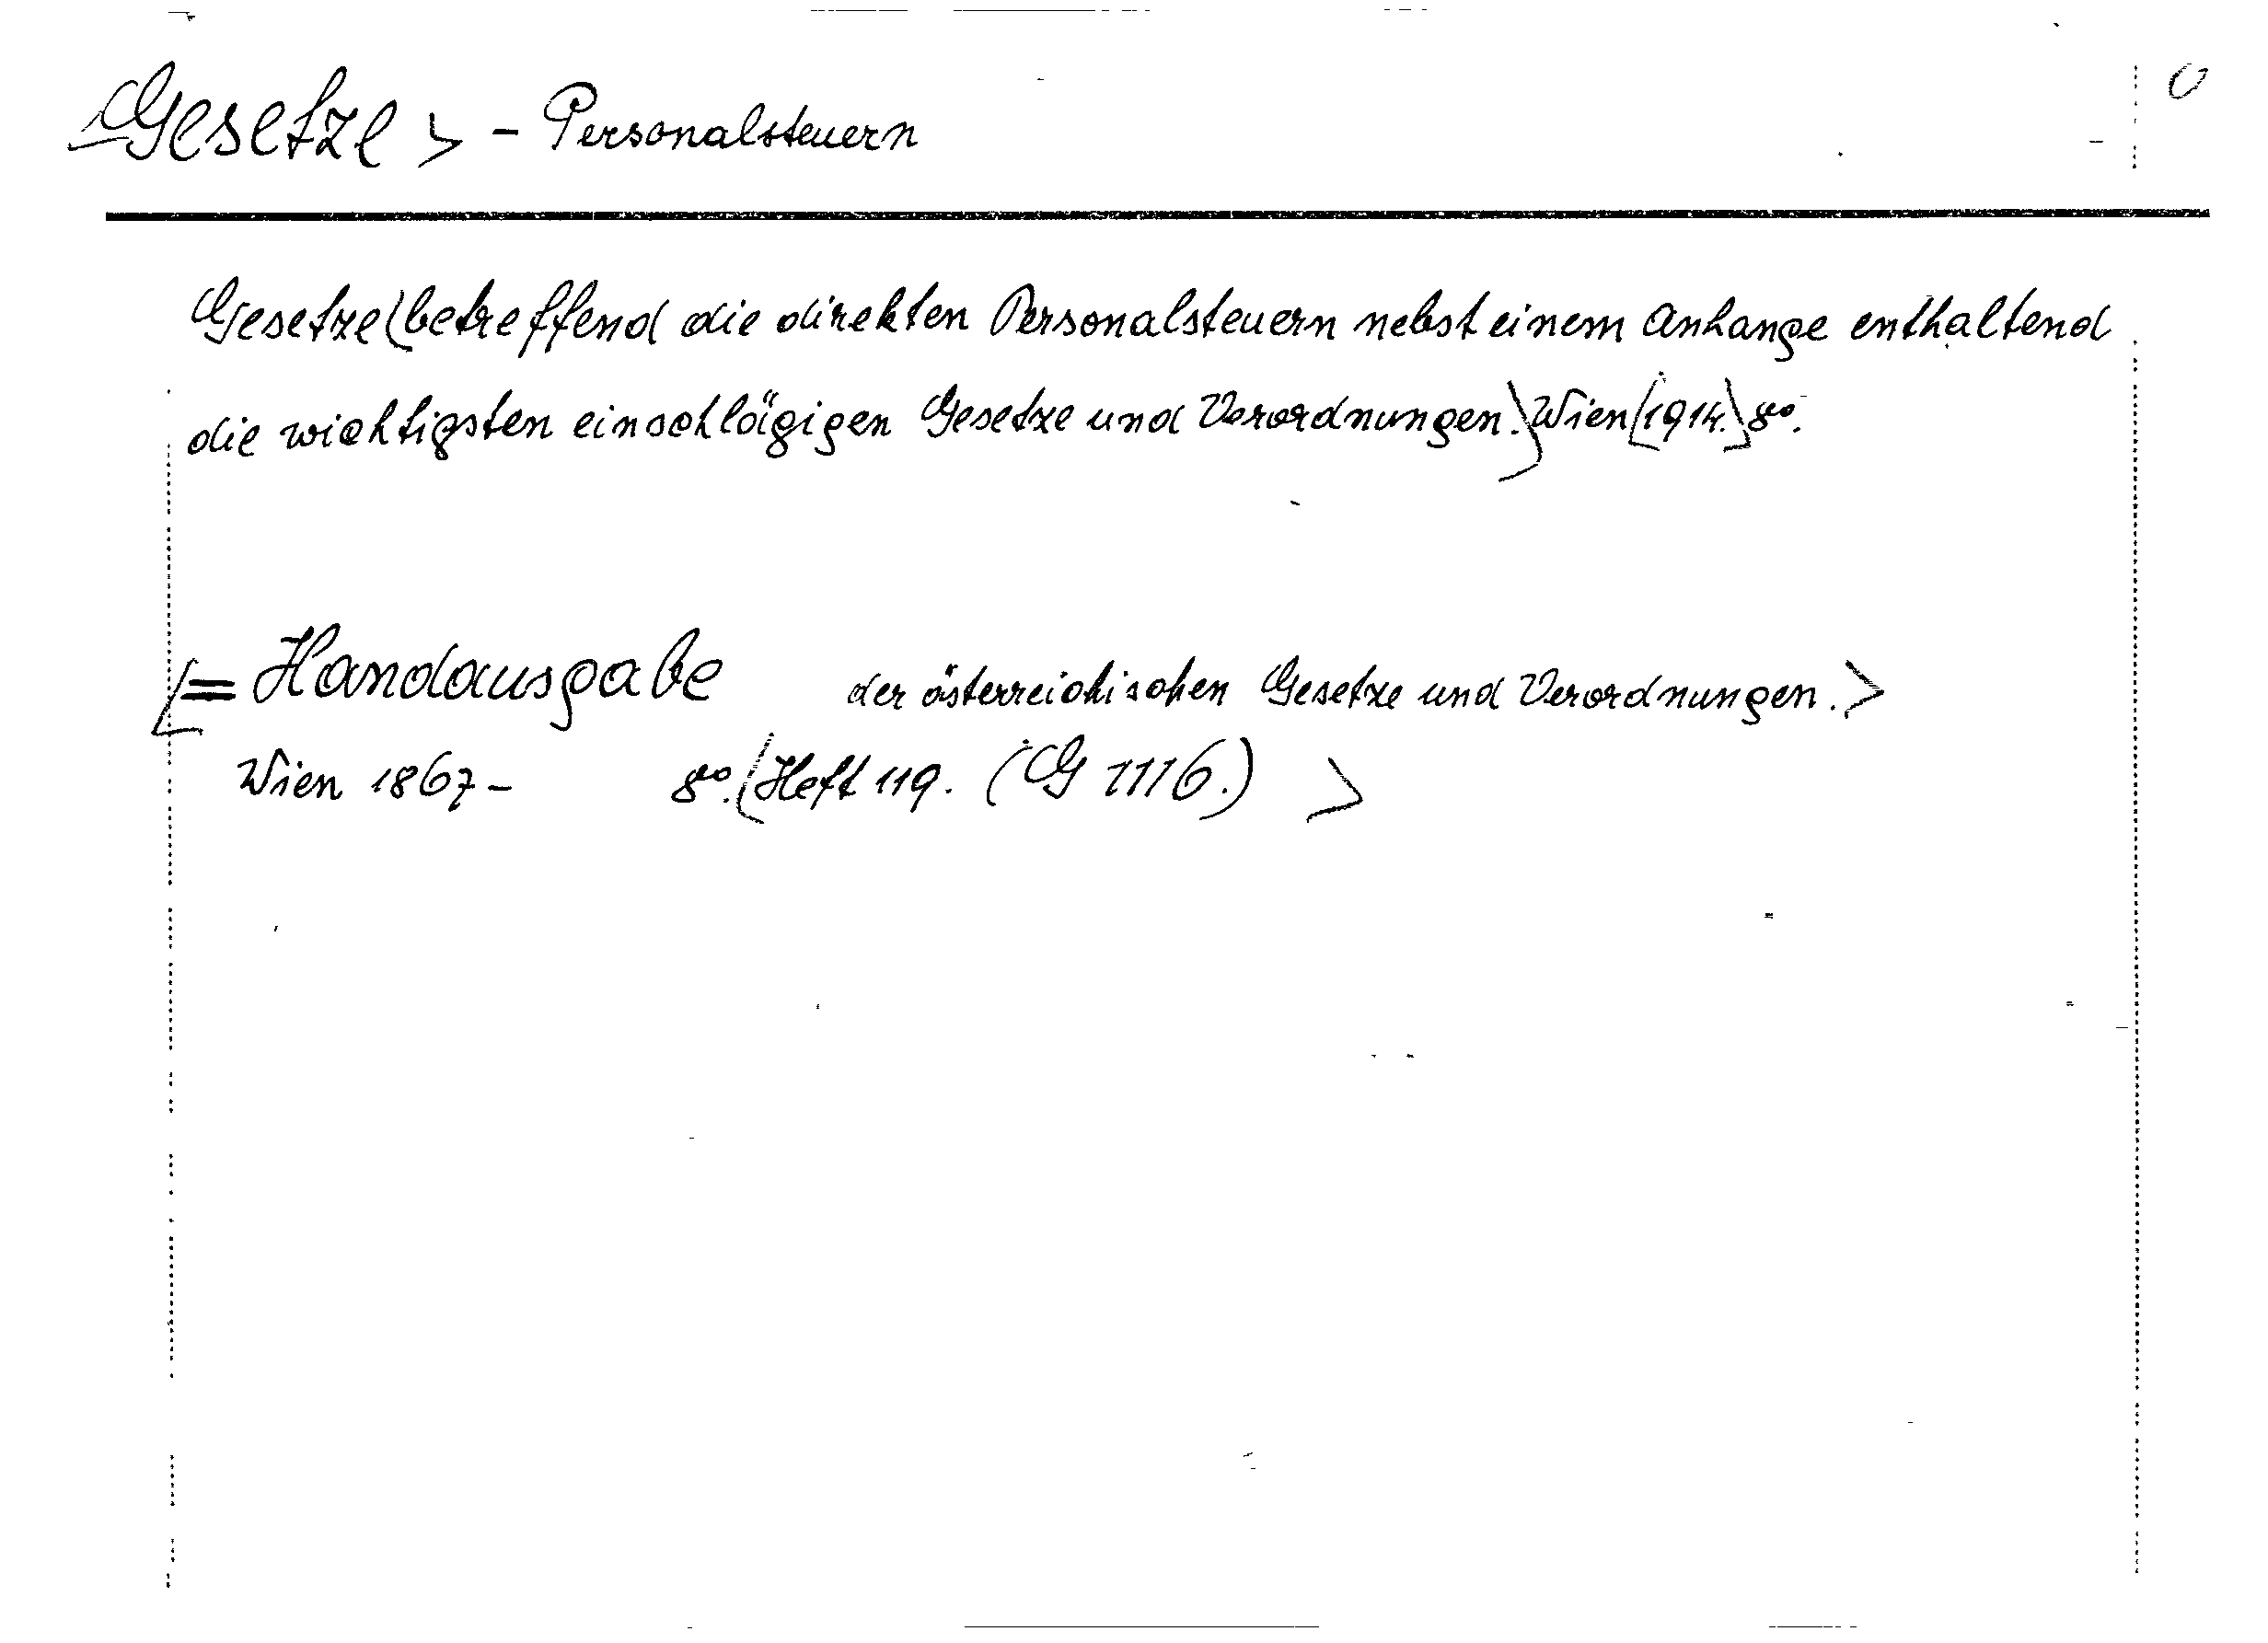 <Gesetze> - Personalsteuern
Gesetze (betreffend die direkten Personalsteuern nebst einem Anhange enthaltend
die wichtigsten einschlägigen Gesetze und Verordnungen.) Wien [1914.] 8⁰.
<= Handausgabe der österreichischen Gesetze und Verordnungen.>
Wien 1867- 8⁰. <Heft 119. (G 1116.) >